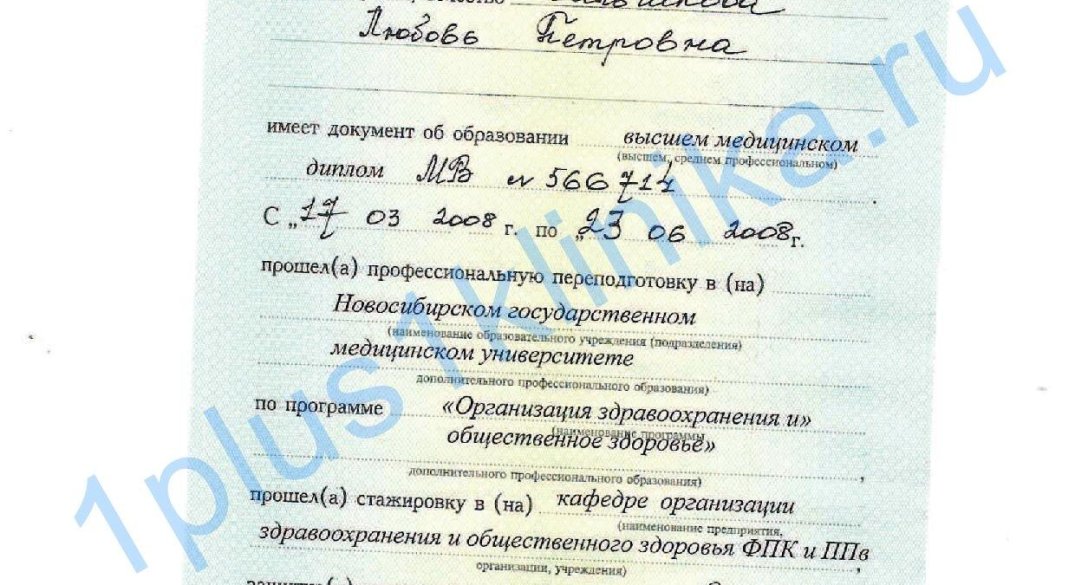 Любовь Петровна
имеет документ об образовании высшем медицинском
(высшем, среднем профессиональном)
диплом МВ № 566714
С „17 03 2008 г. по „23 06 2008 г.
прошел(а) профессиональную переподготовку в (на)
Новосибирском государственном
(наименование образовательного учреждения (подразделения)
медицинском университете
дополнительного профессионального образования)
по программе «Организация здравоохранения и»
(наименование программы
общественное здоровье»
дополнительного профессионального образования)
прошел(а) стажировку в (на) кафедре организации
(наименование предприятия,
здравоохранения и общественного здоровья ФПК и ППв
организации, учреждения)
1plus1klinika.ru